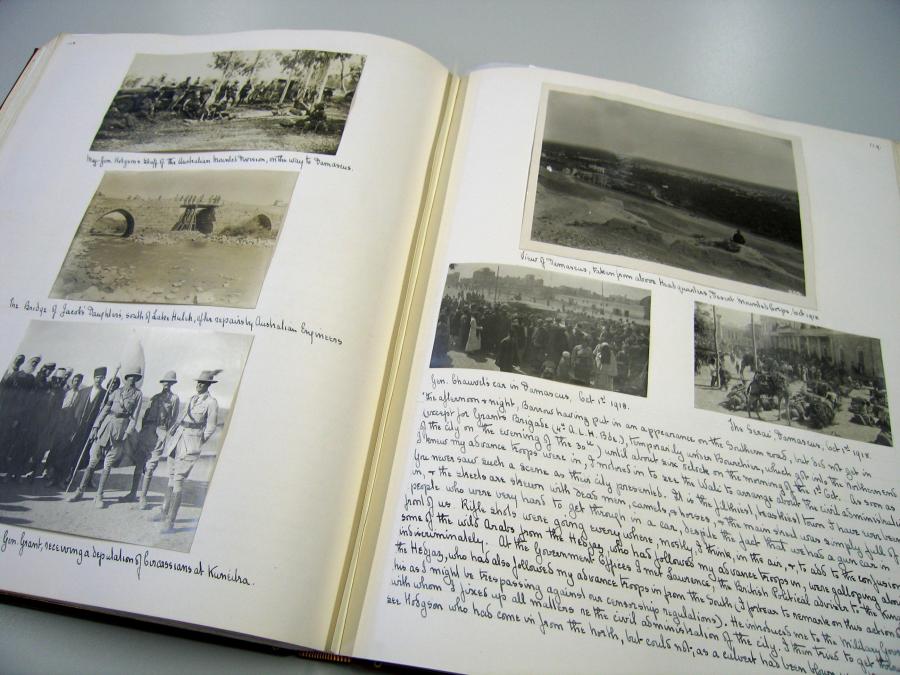 Maj-Gen. Hodgson & Staff of the Australian Mounted Division, on the way to Damascus.
The Bridge of Jacob's Daughters, south of Lake Huleh, after repairs by Australian Engineers
Gen. Grant, receiving a deputation of Circassians at Kuneitra.
View of Damascus, taken from above Headquarters, Desert Mounted Corps, Oct 1918
Gen. Chauvel's car in Damascus, Oct 1st 1918.
The Serai, Damascus, Oct 1st 1918
the afternoon & night, Barrow having put in an appearance on the Southern road, but did not get in
(except for Grant's Brigade (4th A.L.H. Bde.), temporarily under Bourchier, which got into the
of the city on the evening of the 30th) until about six o'clock on the morning of the 1st Oct. As soon as
I knew my advance troops were in, I motored in to see the Wali & arrange about the civil
You never saw such a scene as the city presented. It is the filthiest, town I have ever been
in, & the streets are strewn with dead men, camels & horses, & the main street was simply full of
people who were very hard to get through in a car, despite the fact that we had a gun car in
front of us. Rifle shots were going everywhere, mostly, I think, in the air, & to add to the confusion
some of the wild Arabs from the Hedjaz, who had followed my advance troops in, were galloping about
indiscriminately. At the Government Offices I met Lawrence, the British Political adviser to the
the Hedjaz, who had also followed my advance troops in from the South (I forbear to remark on this action of
his as I might be trespassing against our censorship regulations). He introduced me to the Military
with whom I fixed up all matters re the civil administration of the city. I then tried to get through
see Hodgson who had come in from the north, but could not, as a culvert had been blown